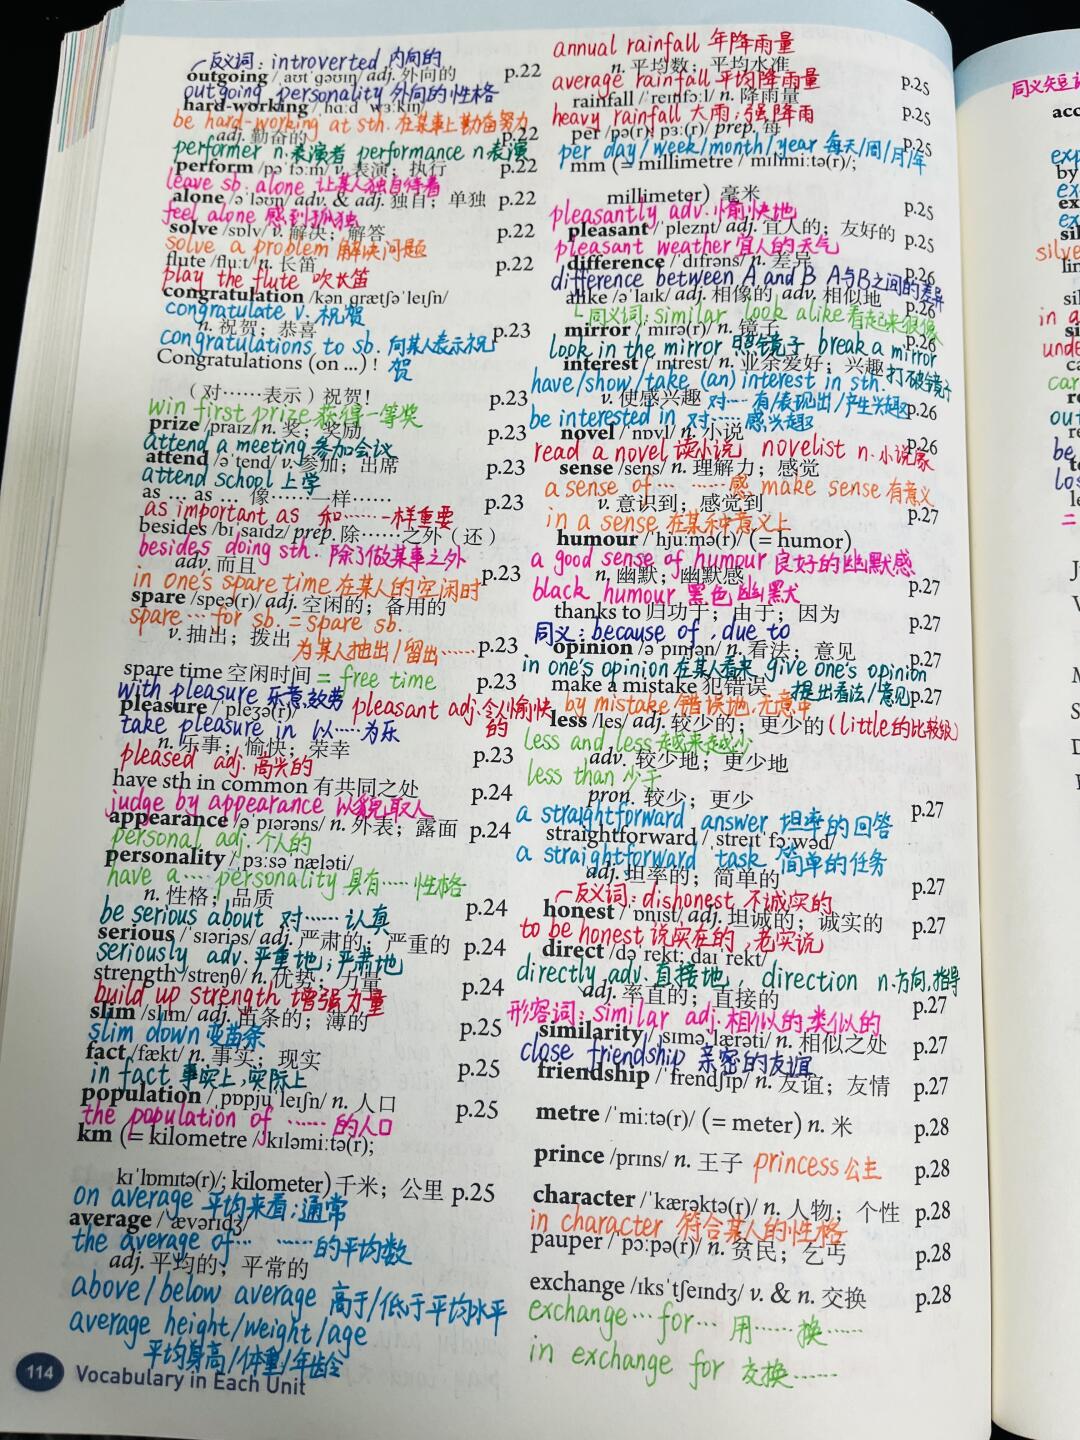 反义词：introverted 内向的
outgoing /ˌaʊtˈɡəʊɪŋ/ adj. 外向的 p.22
outgoing personality 外向的性格
hard-working /ˌhɑːdˈwɜːkɪŋ/
be hard-working at sth. 在某事上勤奋努力
adj. 勤奋的 p.22
performer n.表演者 performance n.表演
perform /pəˈfɔːm/ v. 表演；执行 p.22
leave sb. alone 让某人独自待着
alone /əˈləʊn/ adv. & adj. 独自；单独 p.22
feel alone 感到孤独
solve /sɒlv/ v. 解决；解答 p.22
solve a problem 解决问题
flute /fluːt/ n. 长笛 p.22
play the flute 吹长笛
congratulation /kənˌɡrætʃəˈleɪʃn/
congratulate v. 祝贺
n. 祝贺；恭喜 p.23
congratulations to sb. 向某人表示祝贺
Congratulations (on ...)！
（对……表示）祝贺！ p.23
win first prize 获得一等奖
prize /praɪz/ n. 奖；奖励 p.23
attend a meeting 参加会议
attend /əˈtend/ v. 参加；出席 p.23
attend school 上学
as ... as ... 像……一样…… p.23
as important as 和……一样重要
besides /bɪˈsaɪdz/ prep. 除……之外（还）
besides doing sth. 除了做某事之外
adv. 而且 p.23
in one's spare time 在某人的空闲时
spare /speə(r)/ adj. 空闲的；备用的
spare … for sb. = spare sb.
v. 抽出；拨出 p.23
为某人抽出/留出……
spare time 空闲时间 = free time p.23
with pleasure 乐意效劳
pleasure /ˈpleʒə(r)/ pleasant adj.令人愉快的
take pleasure in 以……为乐
n. 乐事；愉快；荣幸 p.23
pleased adj. 高兴的
have sth in common 有共同之处 p.24
judge by appearance 以貌取人
appearance /əˈpɪərəns/ n. 外表；露面 p.24
personal adj. 个人的
personality /ˌpɜːsəˈnæləti/
have a … personality 具有……性格
n. 性格；品质 p.24
be serious about 对……认真
serious /ˈsɪəriəs/ adj. 严肃的；严重的 p.24
seriously adv. 严重地；严肃地
strength /streŋθ/ n. 优势；力量 p.24
build up strength 增强力量
slim /slɪm/ adj. 苗条的；薄的 p.25
slim down 变苗条
fact /fækt/ n. 事实；现实 p.25
in fact 事实上，实际上
population /ˌpɒpjuˈleɪʃn/ n. 人口 p.25
the population of …… 的人口
km (= kilometre /ˈkɪləmiːtə(r);
kɪˈlɒmɪtə(r)/; kilometer) 千米；公里 p.25
on average 平均来看；通常
average /ˈævərɪdʒ/
the average of … ……的平均数
adj. 平均的；平常的
above/below average 高于/低于平均水平
average height/weight/age
平均身高/体重/年龄
114 Vocabulary in Each Unit
annual rainfall 年降雨量
n. 平均数；平均水准 p.25
average rainfall 平均降雨量
rainfall /ˈreɪnfɔːl/ n. 降雨量 p.25
heavy rainfall 大雨；强降雨
per /pə(r); pɜː(r)/ prep. 每 p.25
per day/week/month/year 每天/周/月/年
mm (= millimetre /ˈmɪlimiːtə(r)/;
millimeter) 毫米 p.25
pleasantly adv. 愉快地
pleasant /ˈpleznt/ adj. 宜人的；友好的 p.25
pleasant weather 宜人的天气
difference /ˈdɪfrəns/ n. 差异 p.26
difference between A and B A与B之间的差异
alike /əˈlaɪk/ adj. 相像的 adv. 相似地 p.26
同义词：similar look alike 看起来很像
mirror /ˈmɪrə(r)/ n. 镜子 p.26
look in the mirror 照镜子 break a mirror 打破镜子
interest /ˈɪntrəst/ n. 业余爱好；兴趣
have/show/take (an) interest in sth.
v. 使感兴趣 对…有/表现出/产生兴趣 p.26
be interested in 对……感兴趣
novel /ˈnɒvl/ n. 小说 p.26
read a novel 读小说 novelist n.小说家
sense /sens/ n. 理解力；感觉
a sense of … ……感 make sense 有意义
v. 意识到；感觉到 p.27
in a sense 在某种意义上
humour /ˈhjuːmə(r)/ (= humor)
a good sense of humour 良好的幽默感
n. 幽默；幽默感 p.27
black humour 黑色幽默
thanks to 归功于；由于；因为 p.27
同义：because of，due to
opinion /əˈpɪnjən/ n. 看法；意见 p.27
in one's opinion 在某人看来 give one's opinion 提出看法/意见
make a mistake 犯错误 p.27
by mistake 错误地，无意中
less /les/ adj. 较少的；更少的 (little的比较级)
less and less 越来越少
adv. 较少地；更少地
less than 少于
pron. 较少；更少 p.27
a straightforward answer 坦率的回答
straightforward /ˌstreɪtˈfɔːwəd/
a straightforward task 简单的任务
adj. 坦率的；简单的 p.27
反义词：dishonest 不诚实的
honest /ˈɒnɪst/ adj. 坦诚的；诚实的 p.27
to be honest 说实在的，老实说
direct /dəˈrekt; daɪˈrekt/
directly adv. 直接地， direction n.方向，指导
adj. 率直的；直接的 p.27
形容词：similar adj. 相似的，类似的
similarity /ˌsɪməˈlærəti/ n. 相似之处 p.27
close friendship 亲密的友谊
friendship /ˈfrendʃɪp/ n. 友谊；友情 p.27
metre /ˈmiːtə(r)/ (= meter) n. 米 p.28
prince /prɪns/ n. 王子 princess 公主 p.28
character /ˈkærəktə(r)/ n. 人物；个性 p.28
in character 符合某人的性格
pauper /ˈpɔːpə(r)/ n. 贫民；乞丐 p.28
exchange /ɪksˈtʃeɪndʒ/ v. & n. 交换 p.28
exchange … for … 用……换……
in exchange for 交换……